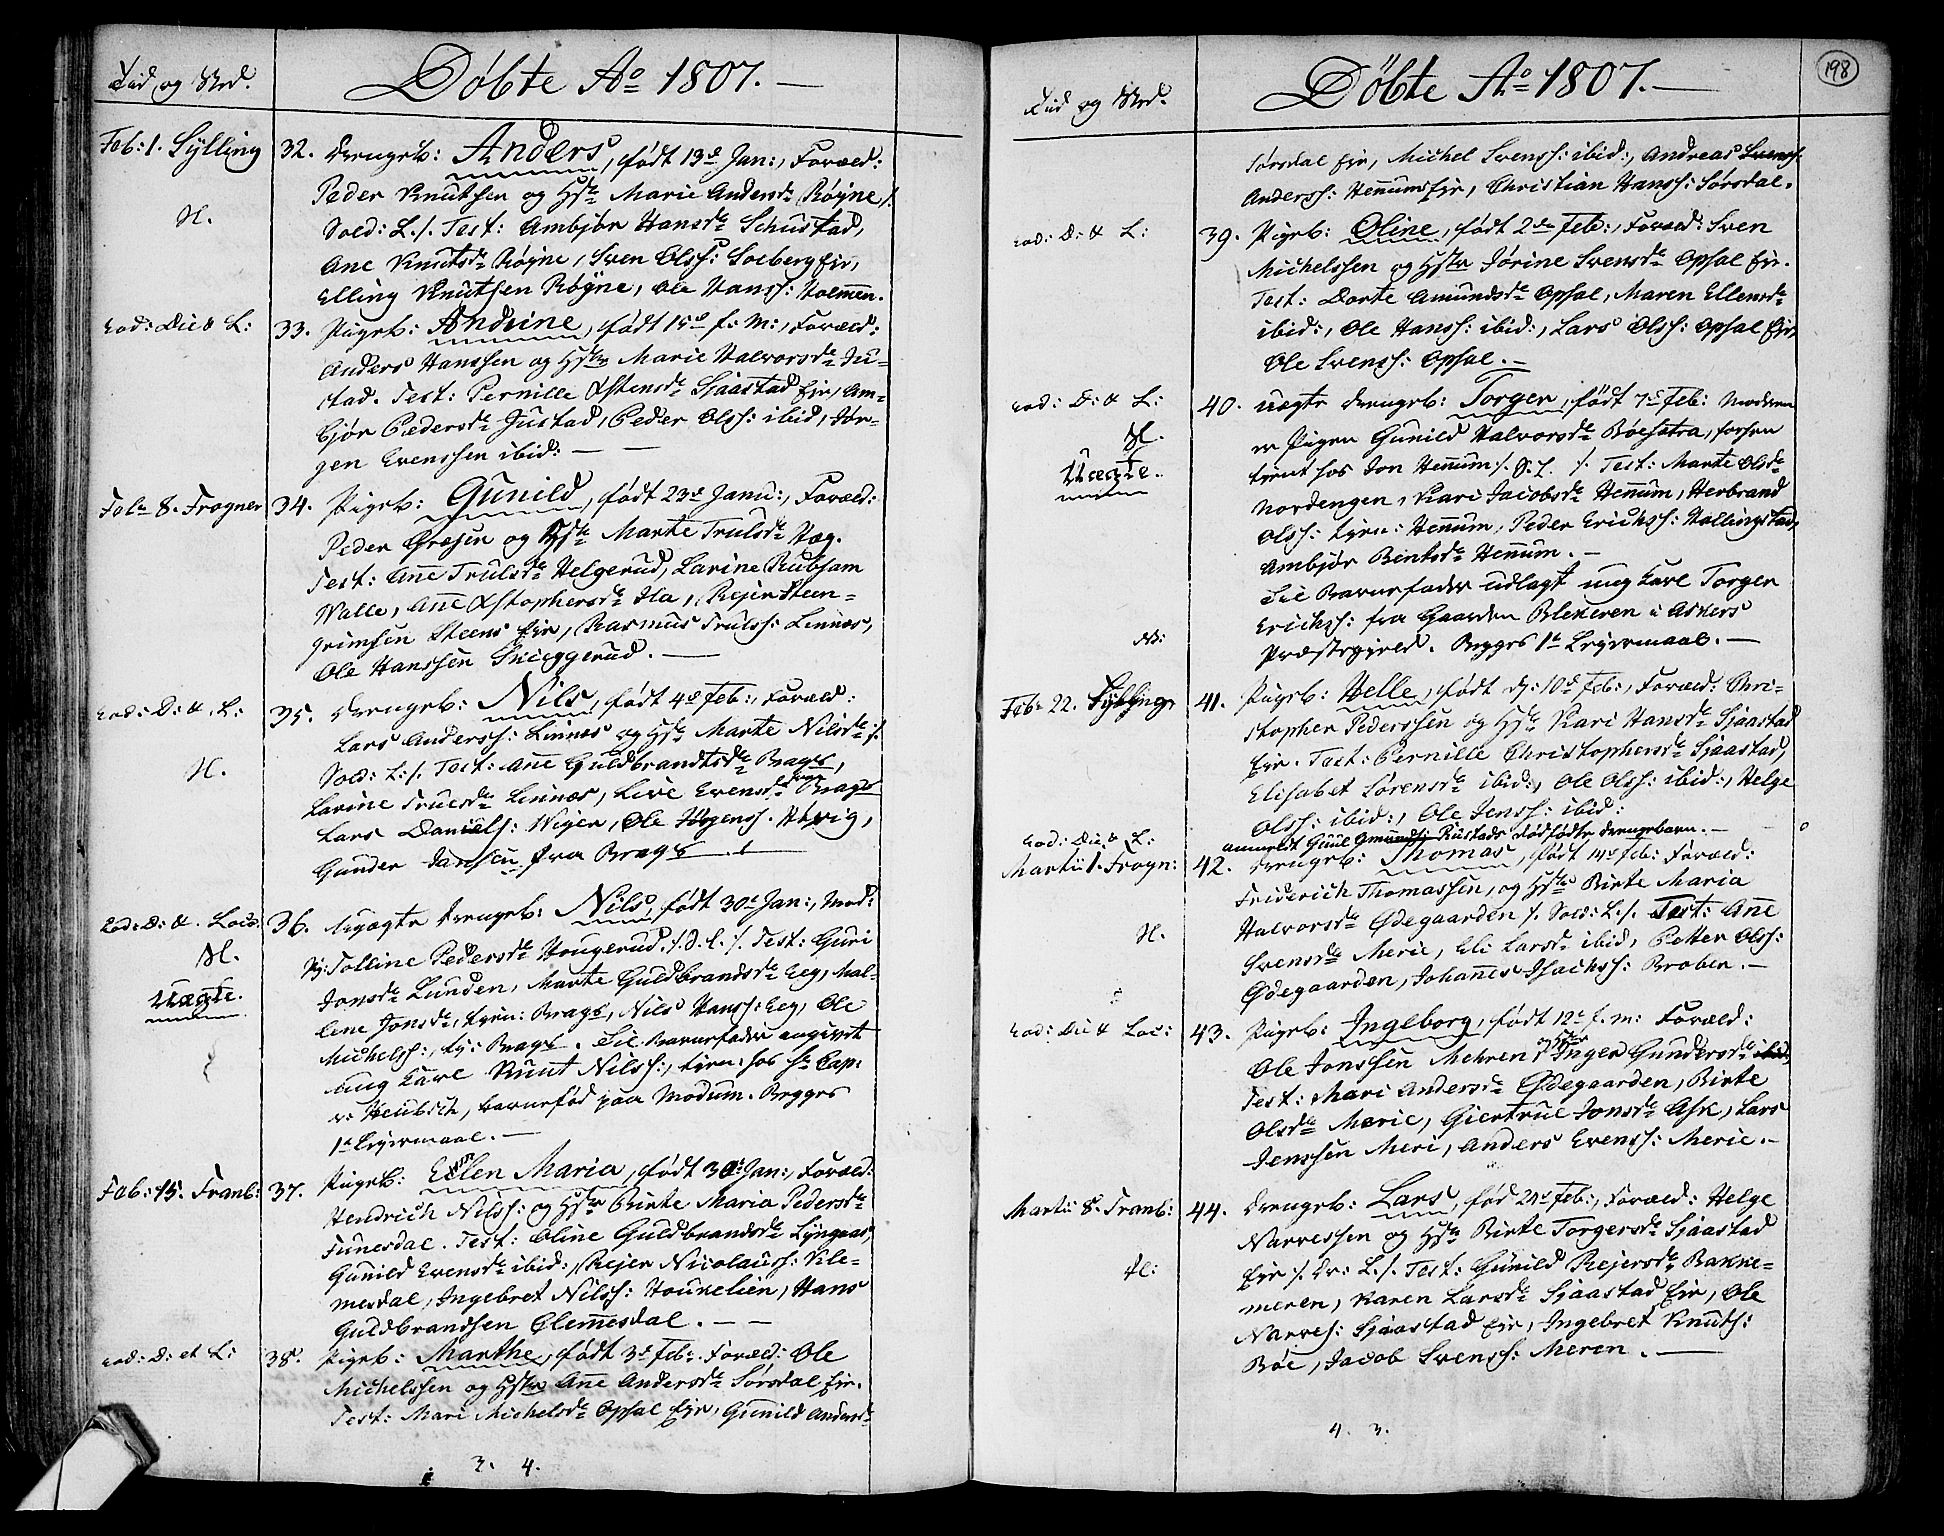 Tid og Sted.
Döbte Aº 1807.
Feb: 1. Sÿlling 32. Drengeb: Anders, født 13de Jan:, Foræld:
Peder Knutsen og Hstr Marie Andersdr Røÿne /:
N. Sold: L./. Test: Ambjør Hansdr Schustad,
Ane Knutsdr Røÿne, Sven Olss: Solberg Eje,
Elling Knutsen Røÿne, Ole Hanss: Holmen.
eod: Die & L: 33. Pigeb: Andrine, født 15de f: M:, Foræld:
Anders Hanssen og Hstr Marie Halvorsdr Ju-
stad. Test: Pernille Xstensdr Sjaastad Eje, Am-
bjør Pedersdr Justad, Peder Olss: ibid, Jør-
gen Evenssen ibid: —
Feb: 8. Frogner 34. Pigeb: Gunild, født 23de Janu:, Foræld:
Peder Græsen og Hstr Marte Trulsdr Hæg.
Test: Ane Trulsdr Helgerud, Larine Rubsam
Walle, Ane Xstophersdr Ila, Rejer Steen-
grimsen Steens Eje, Rasmus Trulss: Linnæs,
Ole Hanssen Snieggerud. —
eod: D: & L: 35. Drengeb: Nils, født 4de Feb:, Foræld:
Lars Anderss: Linnæs og Hstr Marte Nilsdr /:
N. Sold: L:/. Test: Ane Guldbrandtsdr Brags,
Larine Truesdr Linnæs, Live Evensdr Brags
Lars Daniels: Wiger, Ole Jørgens.
Gunder Jansen fra Brags
eod: D: & Loco: 36. Uægte Drengeb: Nils, født 30de Jan:, Mod:
N. P: Tolline Pedersdr Hougerud. /. d. l. /. Test: Guri
Uægte. Jonsdr Lunden, Marte Guldbrandsdr Eeg, Mal-
lene Jonsdr, tjen: Brags, Nils Hanss: Eeg, Ole
Michelss:, tj: Brags. Til Barnefader angivet
ung Karl Knut Nilss:, tjen: hos Hr Cap:
v: Heubsch, barnefød paa Modum. Begges
1te Lejermaal. —
Feb: 15. Tranb: 37. Pigeb: Ellen Maria, født 30te Jan:, Foræld:
Hendrich Nilss: og Hstr Birte Maria Pedersdr
Tunesdal. Test: Oline Guldbrandsdr Lÿngaas,
Gunild Evensdr ibid:, Rejer Nicolaiss: Kle-
mesdal, Ingebret Nilss: Hounelien, Hans
Guldbrandsen Clemmesdal. —
eod: D: et L: 38. Pigeb: Marthe, født 3de Feb: Foræld: Ole
Michelssen og Hstr Ane Andersdr Sørsdal Eje.
Test: Mari Michelsdr Opsal Eje, Gunild Andersdr
3. 4.
198
Tid og Sted.
Döbte Aº 1807.
Sørsdal Eje, Michel Svenss: ibid:, Andreas Svenss:
Anderss: Hennums Eje, Christian Hanss: Sørsdal.
eod: D: & L: 39. Pigeb: Oline, født 2de Feb:, Foræld: Sven
Michelssen og Hstr Jørine Svensdr Opsal Eje.
Test: Dorte Amundsdr Opsal, Maren Ellensdr
ibid:, Ole Hanss: ibid:, Lars Olss: Opsal Eje,
Ole Svenss: Opsal. —
eod: D: & L: 40. Uægte Drengeb: Torger, født 7de Feb: Moderen
N. er Pigen Gunild Halvorsdr Bøesætra, forhen
Uægte. tjent hos Jon Hennum /. d. l. /. Test: Marte Olsdr
Nordengen, Kari Jacobsdr Hennum, Herbrand
Olss: tjen: Hennum, Peder Erichss: Hallingstad,
Ambjør Bentsdr Hennum. —
Til Barnefader udlagt ung Karl Torger
Erichss: fra Gaarden Blekeren i Askers
NB: Præstegjeld. Begges 1te Lejermaal. —
Feb: 22. Sÿlling 41. Pigeb: Helle, født d: 10de Feb:, Foræld: Chri-
stopher Pederssen og Hstr Kari Hansdr Sjaastad
Eje. Test: Pernille Christophersdr Sjaastad,
Elisabet Sørensdr ibid:, Ole Olss: ibid:, Helge
Olss: ibid:, Ole Jenss: ibid:
eod: Die & L: anmeldt Guul Amunds: Rustads dødfødte Drengebarn. —
Martii 1. Frogn: 42. Drengeb: Thomas, født 14de Feb: Foræld:
Friderich Thomassen, og Hstr Birte Maria
N. Halvorsdr Ødegaarden /. Sold: L./. Test: Ane
Svensdr Merie, Eli Larsdr ibid, Petter Olss:
Ødegaarden, Johannes Isachss: Braben. —
eod: Die & Loc: 43. Pigeb: Ingeborg, født 12te f. m: Foræld:
Ole Jonssen Mehren og Hstr Inger Gundersdr ibid
Test: Mari Andersdr Ødegaarden, Birte
Olsdr Merie, Giertrue Jonsdr Ask, Lars
Jenssen Meri, Anders Evenss: Merie. —
Martii 8. Tranb: 44. Drengeb: Lars, fød 21de Feb:, Foræld: Helge
Narvessen og Hstr Birte Torgersdr Sjaastad
N: Eje /. Dr: L./. Test: Gunild Rejersdr Bakke-
meren, Karen Larsdr Sjaastad Eje, Ole
Narves: Sjaastad Eje, Ingebret Knuts:
Bøe, Jacob Svenss: Meren. —
4. 3.